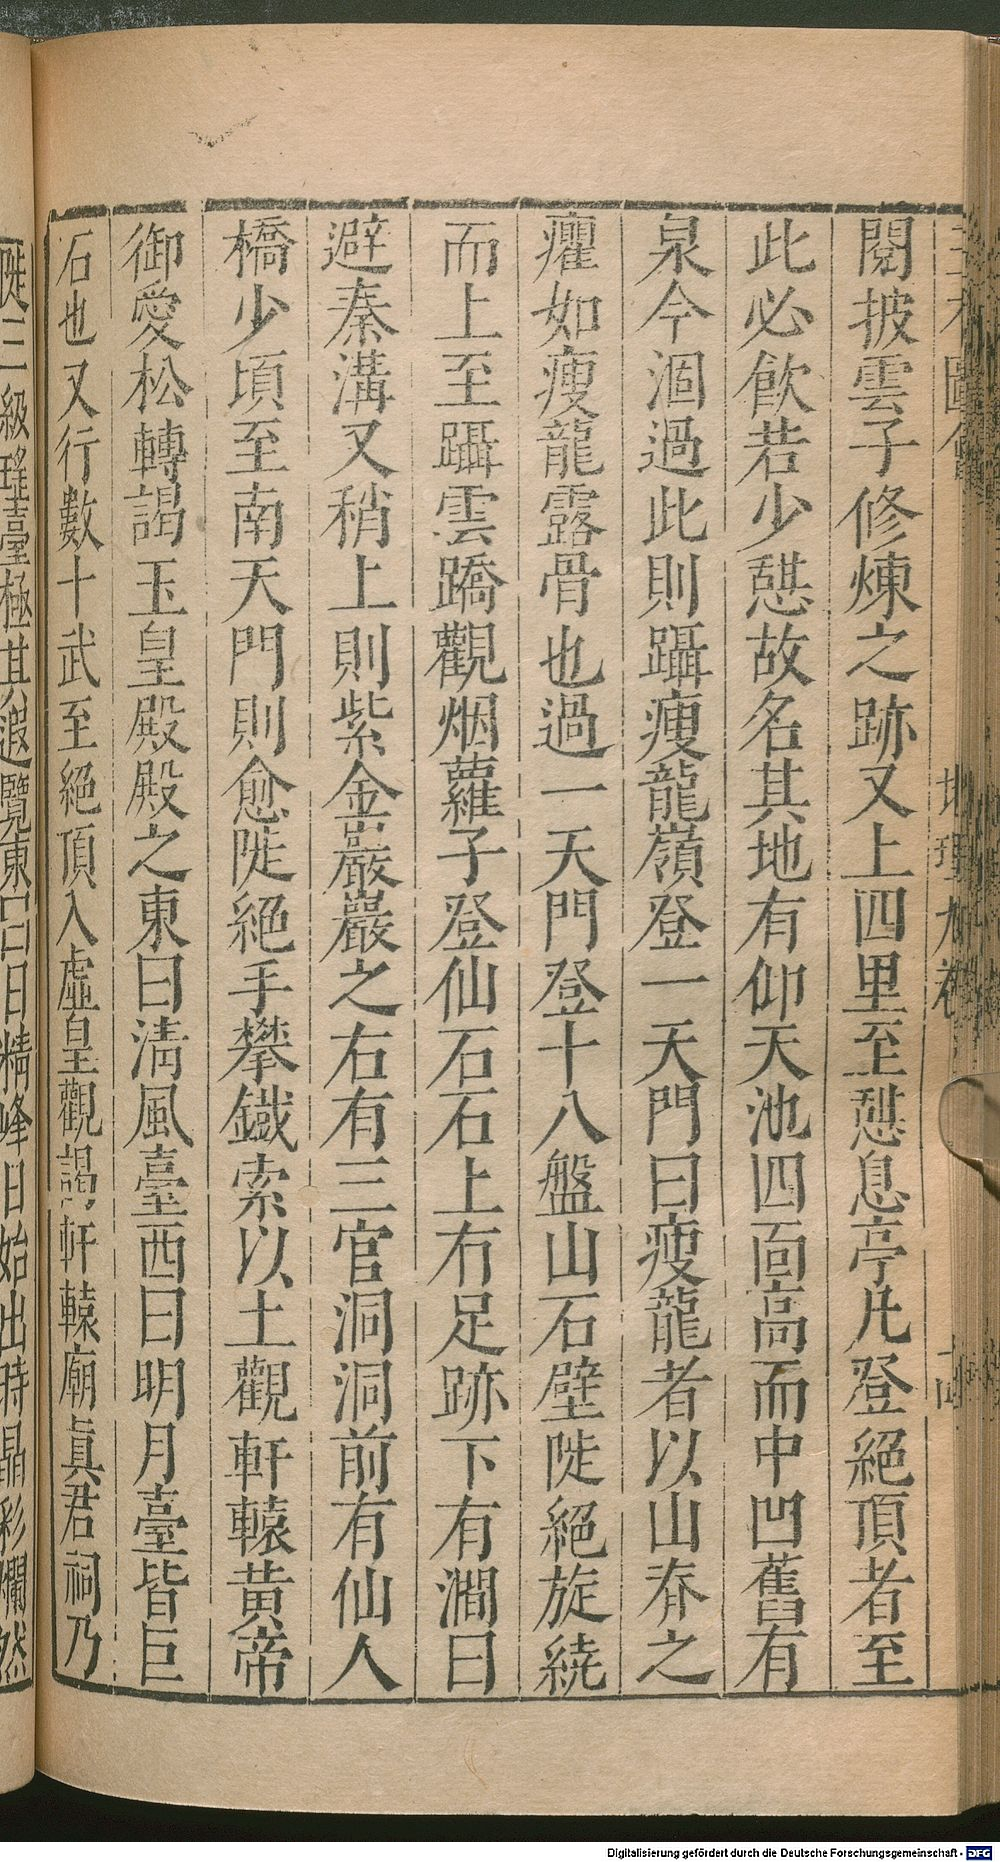 閱披雲子修煉之跡又上四里至憇息亭凡登絕頂者至
此必飲若少憇故名其地有仰天池四面高而中凹舊有
泉今涸過此則躡瘦龍嶺登一天門曰瘦龍者以山脊之
癯如瘦龍露骨也過一天門登十八盤山石壁陡絕旋繞
而上至躡雲蹻觀烟蘿子登仙石石上右足跡下有澗曰
避秦溝又稍上則紫金巖巖之右有三官洞洞前有仙人
橋少頃至南天門則愈陡絕手攀鐵索以土觀軒轅黃帝
御愛松轉謁玉皇殿殿之東曰清風臺西曰明月臺皆巨
石也又行數十武至絕頂入虛皇觀謁軒轅廟眞君祠乃
陟三級瑤臺極其遐覽東曰日精峰日始出時晶彩爛然
地理九卷
Digitalisierung gefördert durch die Deutsche Forschungsgemeinschaft - DFG